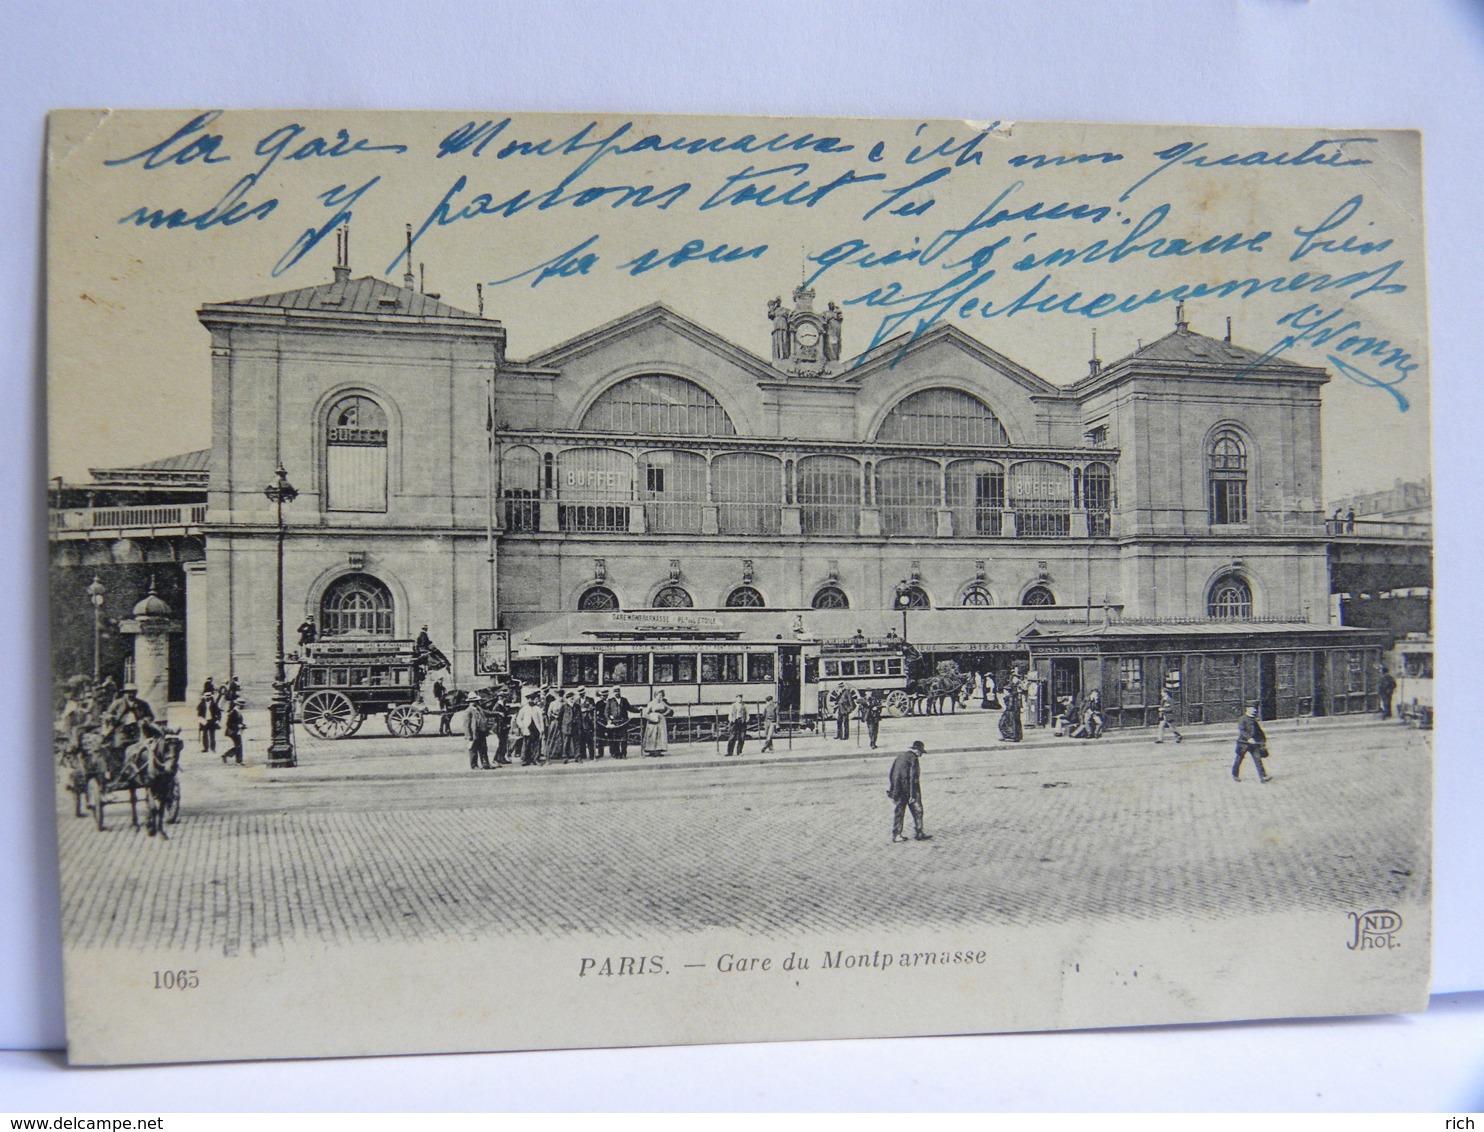 la gare Montparnasse c'est mon quartier
nous y passons tout les jours.
ta sœur qui t'embrasse bien
affectueusement
Yvonne
BUFFET
BUFFET
BUFFET
GARE MONTPARNASSE
ETOILE
BIERE
1065
PARIS. — Gare du Montparnasse
ND
Phot.
© delcampe.net
rich